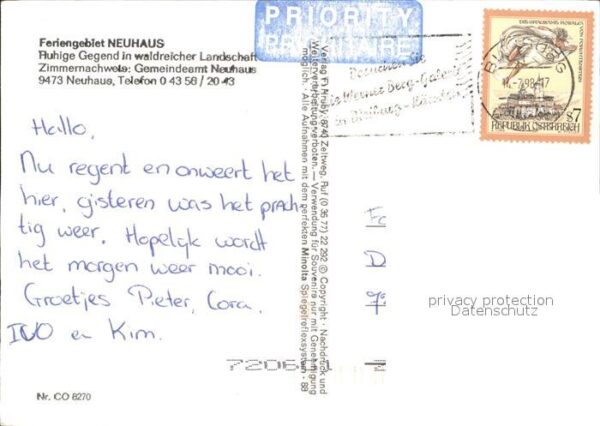 Feriengebiet NEUHAUS
Ruhige Gegend in waldreicher Landschaft
Zimmernachweis: Gemeindeamt Neuhaus
9473 Neuhaus, Telefon 0 43 56 / 20 43
PRIORITY
PRIORITAIRE
Besuchen Sie
Werner Berg-Galerie
in Bleiburg - Kärnten
REPUBLIK ÖSTERREICH
S7
Hallo,
Nu regent en onweert het
hier, gisteren was het prach-
tig weer. Hopelijk wordt
het morgen weer mooi.
Groetjes Pieter, Cora,
IVO en Kim.
Verlag F. Hruby, 8740 Zeltweg, Ruf (0 35 77) 22 292 © Copyright · Nachdruck und
Weiterverarbeitung verboten. — Verwendung für Souvenire nur mit Genehmigung
möglich. · Alle Aufnahmen mit dem perfekten Minolta Spiegelreflexsystem · 88
Fc
D
privacy protection
Datenschutz
Nr. CO 8270